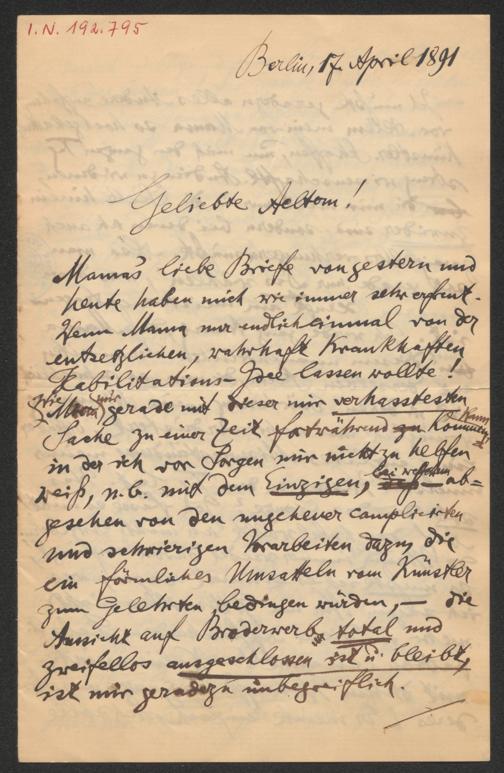 I.N. 192.795
Berlin, 17. April 1891
Geliebte Aeltern!
Mama's liebe Briefe von gestern und
heute haben mich wie immer sehr erfreut. –
Wenn Mama nur endlich einmal von der
entsetzlichen, wahrhaft krankhaften
Habilitations-Idee lassen wollte!
Wie mir gerade mit dieser mir verhasstesten
Sache zu einer Zeit fortwährend kommen kann
in der ich vor Sorgen mir nicht zu helfen
weiß, n.b. mit dem Einzigen, bei welchem ab=
gesehen von den ungeheuer complicirten
und schwierigen Vorarbeiten dazu, die
ein förmliches Umsatteln vom Künstler
zum Gelehrten bedingen würden, – die
Aussicht auf Broderwerb total und
zweifellos ausgeschlossen ist u. bleibt,
ist mir geradezu unbegreiflich.